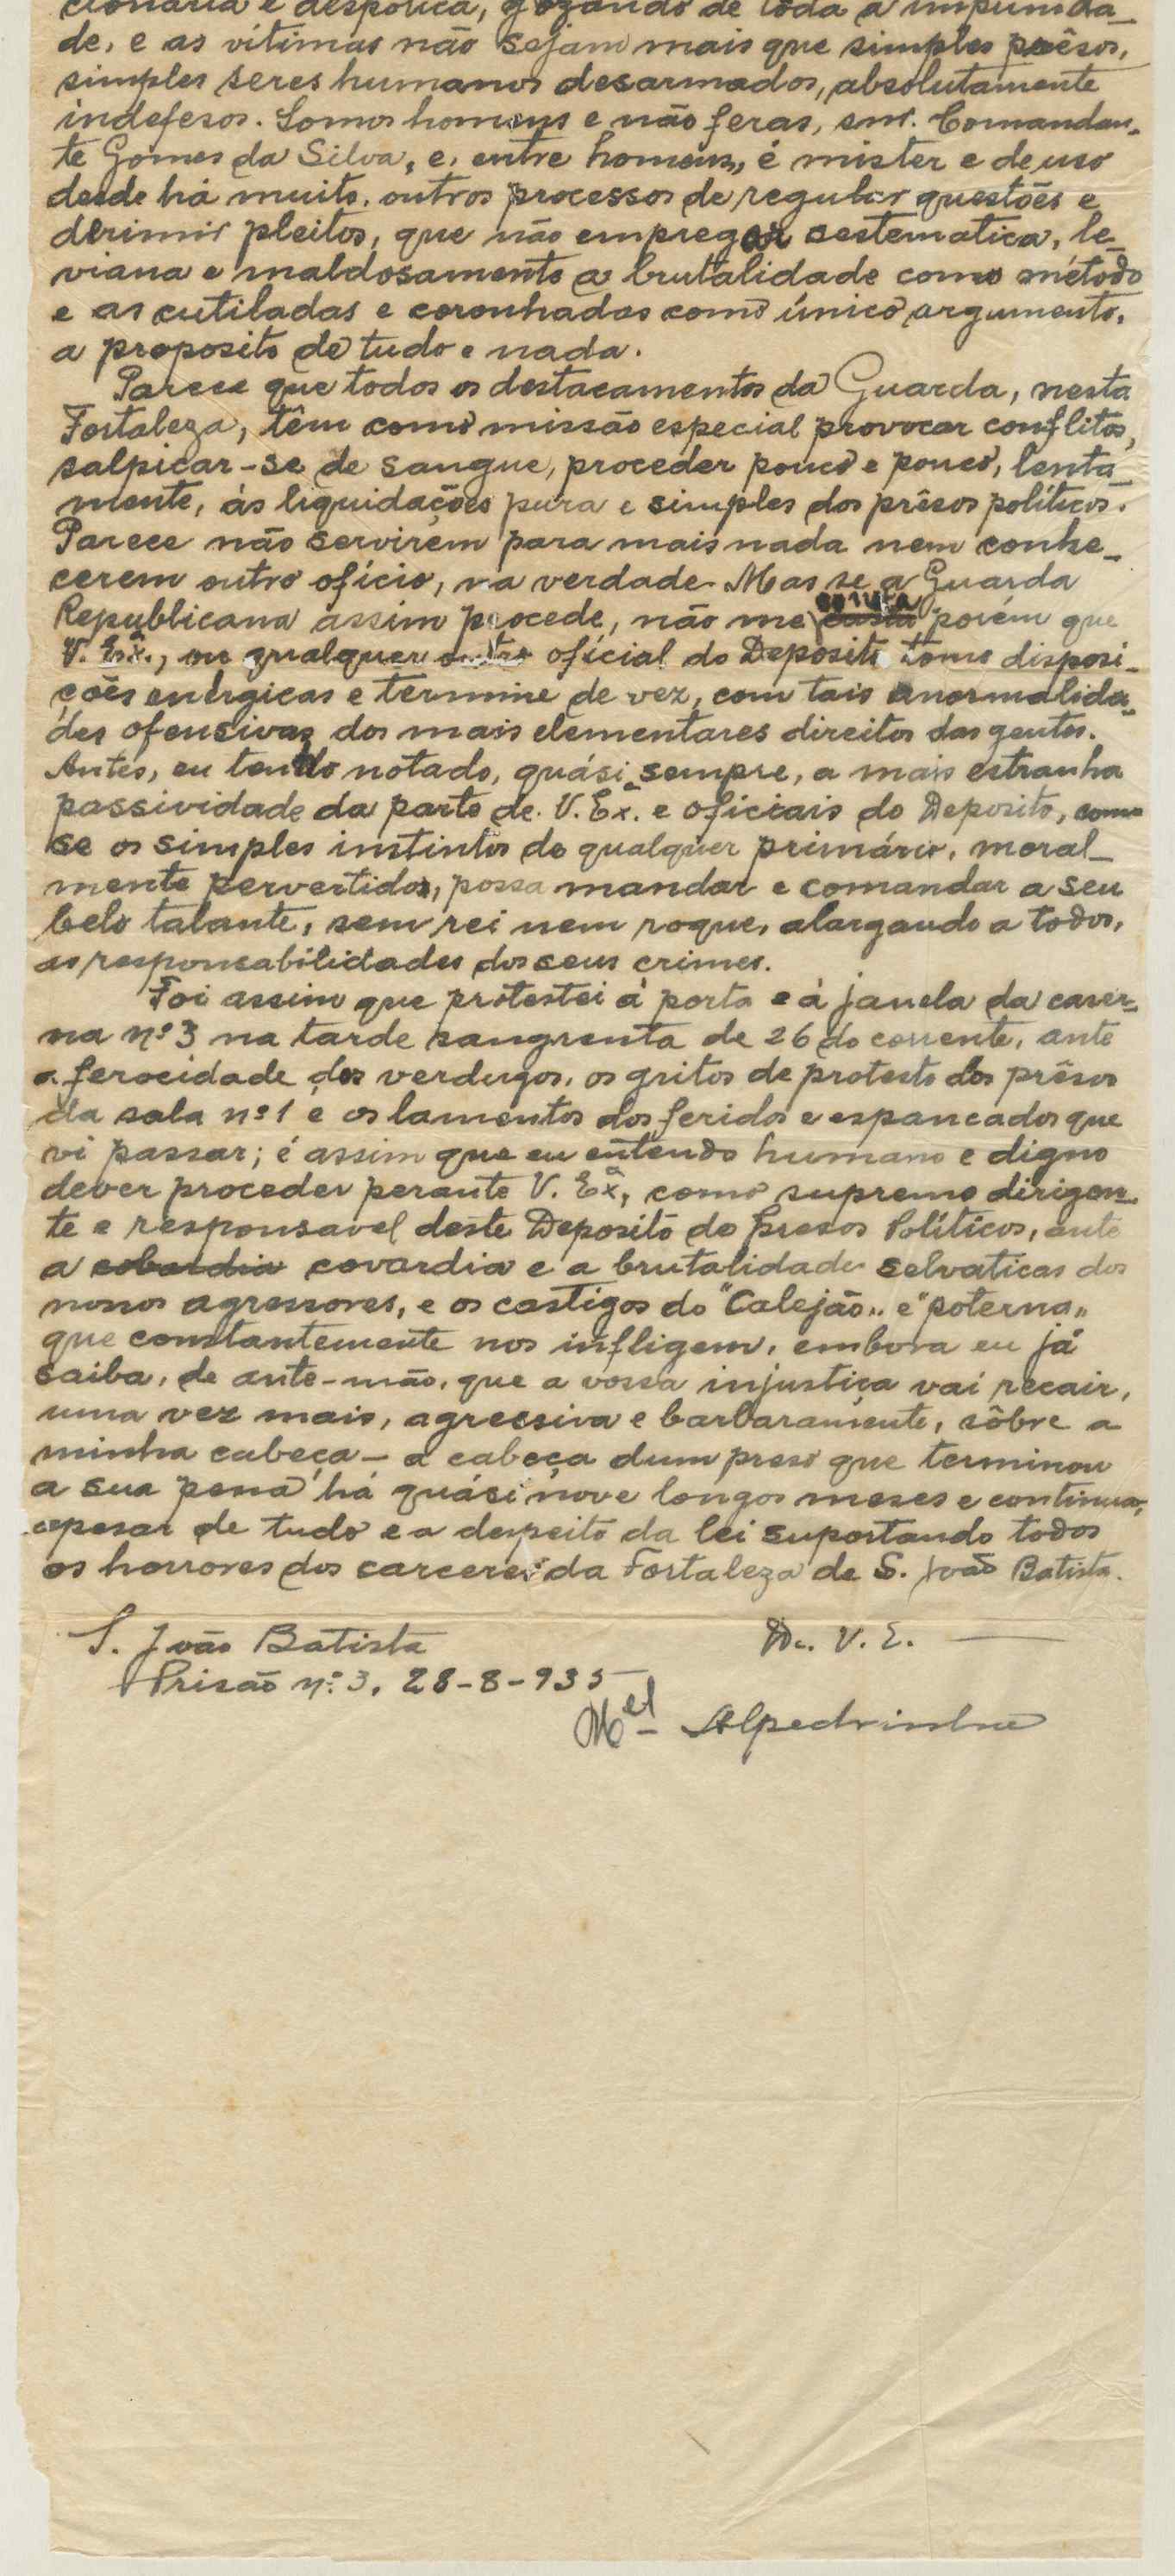 cionaria e despotica, gozando de toda a impunida-
de, e as vítimas não sejam mais que simples prêsos,
simples seres humanos desarmados, absolutamente
indefesos. Somos homens e não feras, snr. Comandan-
te Gomes da Silva, e, entre homens, é mister e de uso
desde há muito, outros processos de regular questões e
derimir pleitos, que não empregar sestematica, le-
viana e maldosamente a brutalidade como método
e as cutiladas e coronhadas como único argumento,
a proposito de tudo e nada.
Parece que todos os destacamentos da Guarda, nesta
Fortaleza, têm como missão especial provocar conflitos,
salpicar-se de sangue, proceder pouco e pouco, lenta-
mente, ás liquidações pura e simples dos prêsos políticos.
Parece não servirem para mais nada nem conhe-
cerem outro ofício, na verdade. Mas se a Guarda
Republicana assim procede, não me consta porém que
V. Exª., ou qualquer outro oficial do Deposito tome disposi-
ções enérgicas e termine de vez, com tais anormalida-
des ofensivas dos mais elementares direitos das gentes.
Antes, eu tendo notado, quási sempre, a mais estranha
passividade da parte de V. Exª. e oficiais do Deposito, como
se os simples instintos de qualquer primário, moral-
mente pervertido, possa mandar e comandar a seu
belo talante, sem rei nem roque, alargando a todos,
as responsabilidades dos seus crimes.
Foi assim que protestei á porta e á janela da caser-
na nº 3 na tarde sangrenta de 26 do corrente, ante
a ferocidade dos verdugos, os gritos de protesto dos prêsos
da sala nº 1 e os lamentos dos feridos e espancados que
vi passar; é assim que eu entendo humano e digno
dever proceder perante V. Exª, como supremo dirigen-
te e responsavel dêste Deposito de Presos Políticos, ante
a cobardia covardia e a brutalidade selvaticas dos
nossos agressores, e os castigos do "Calejão" e "poterna"
que constantemente nos infligem, embora eu já
saiba, de ante-mão, que a vossa injustiça vai recair,
uma vez mais, agressiva e barbaramente, sôbre a
minha cabeça – a cabeça dum preso que terminou
a sua pena há quási nove longos meses e continua,
apesar de tudo e a despeito da lei suportando todos
os horrores dos carceres da Fortaleza de S. João Batista.
S. João Batista
De. V. E.
Prisão nº 3, 28-8-935
Mel Alpedrinha